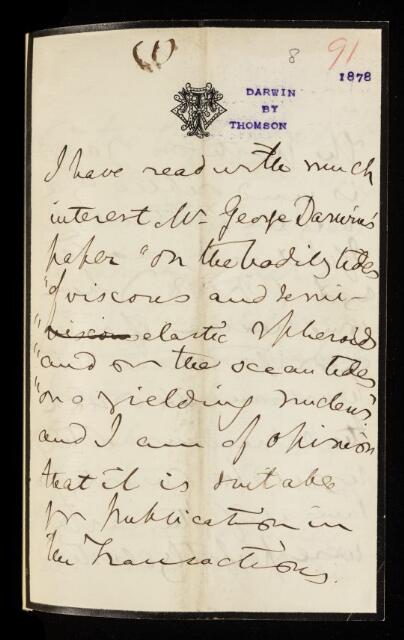 8
91
1878
DARWIN
BY
THOMSON
I have read with much
interest Mr George Darwin's
paper "on the bodily tides
"of viscous and semi-
"viscous elastic spheroids
"and on the ocean tides
"on a yielding nucleus"
and I am of opinion
that it is suitable
for publication in
the Transactions.